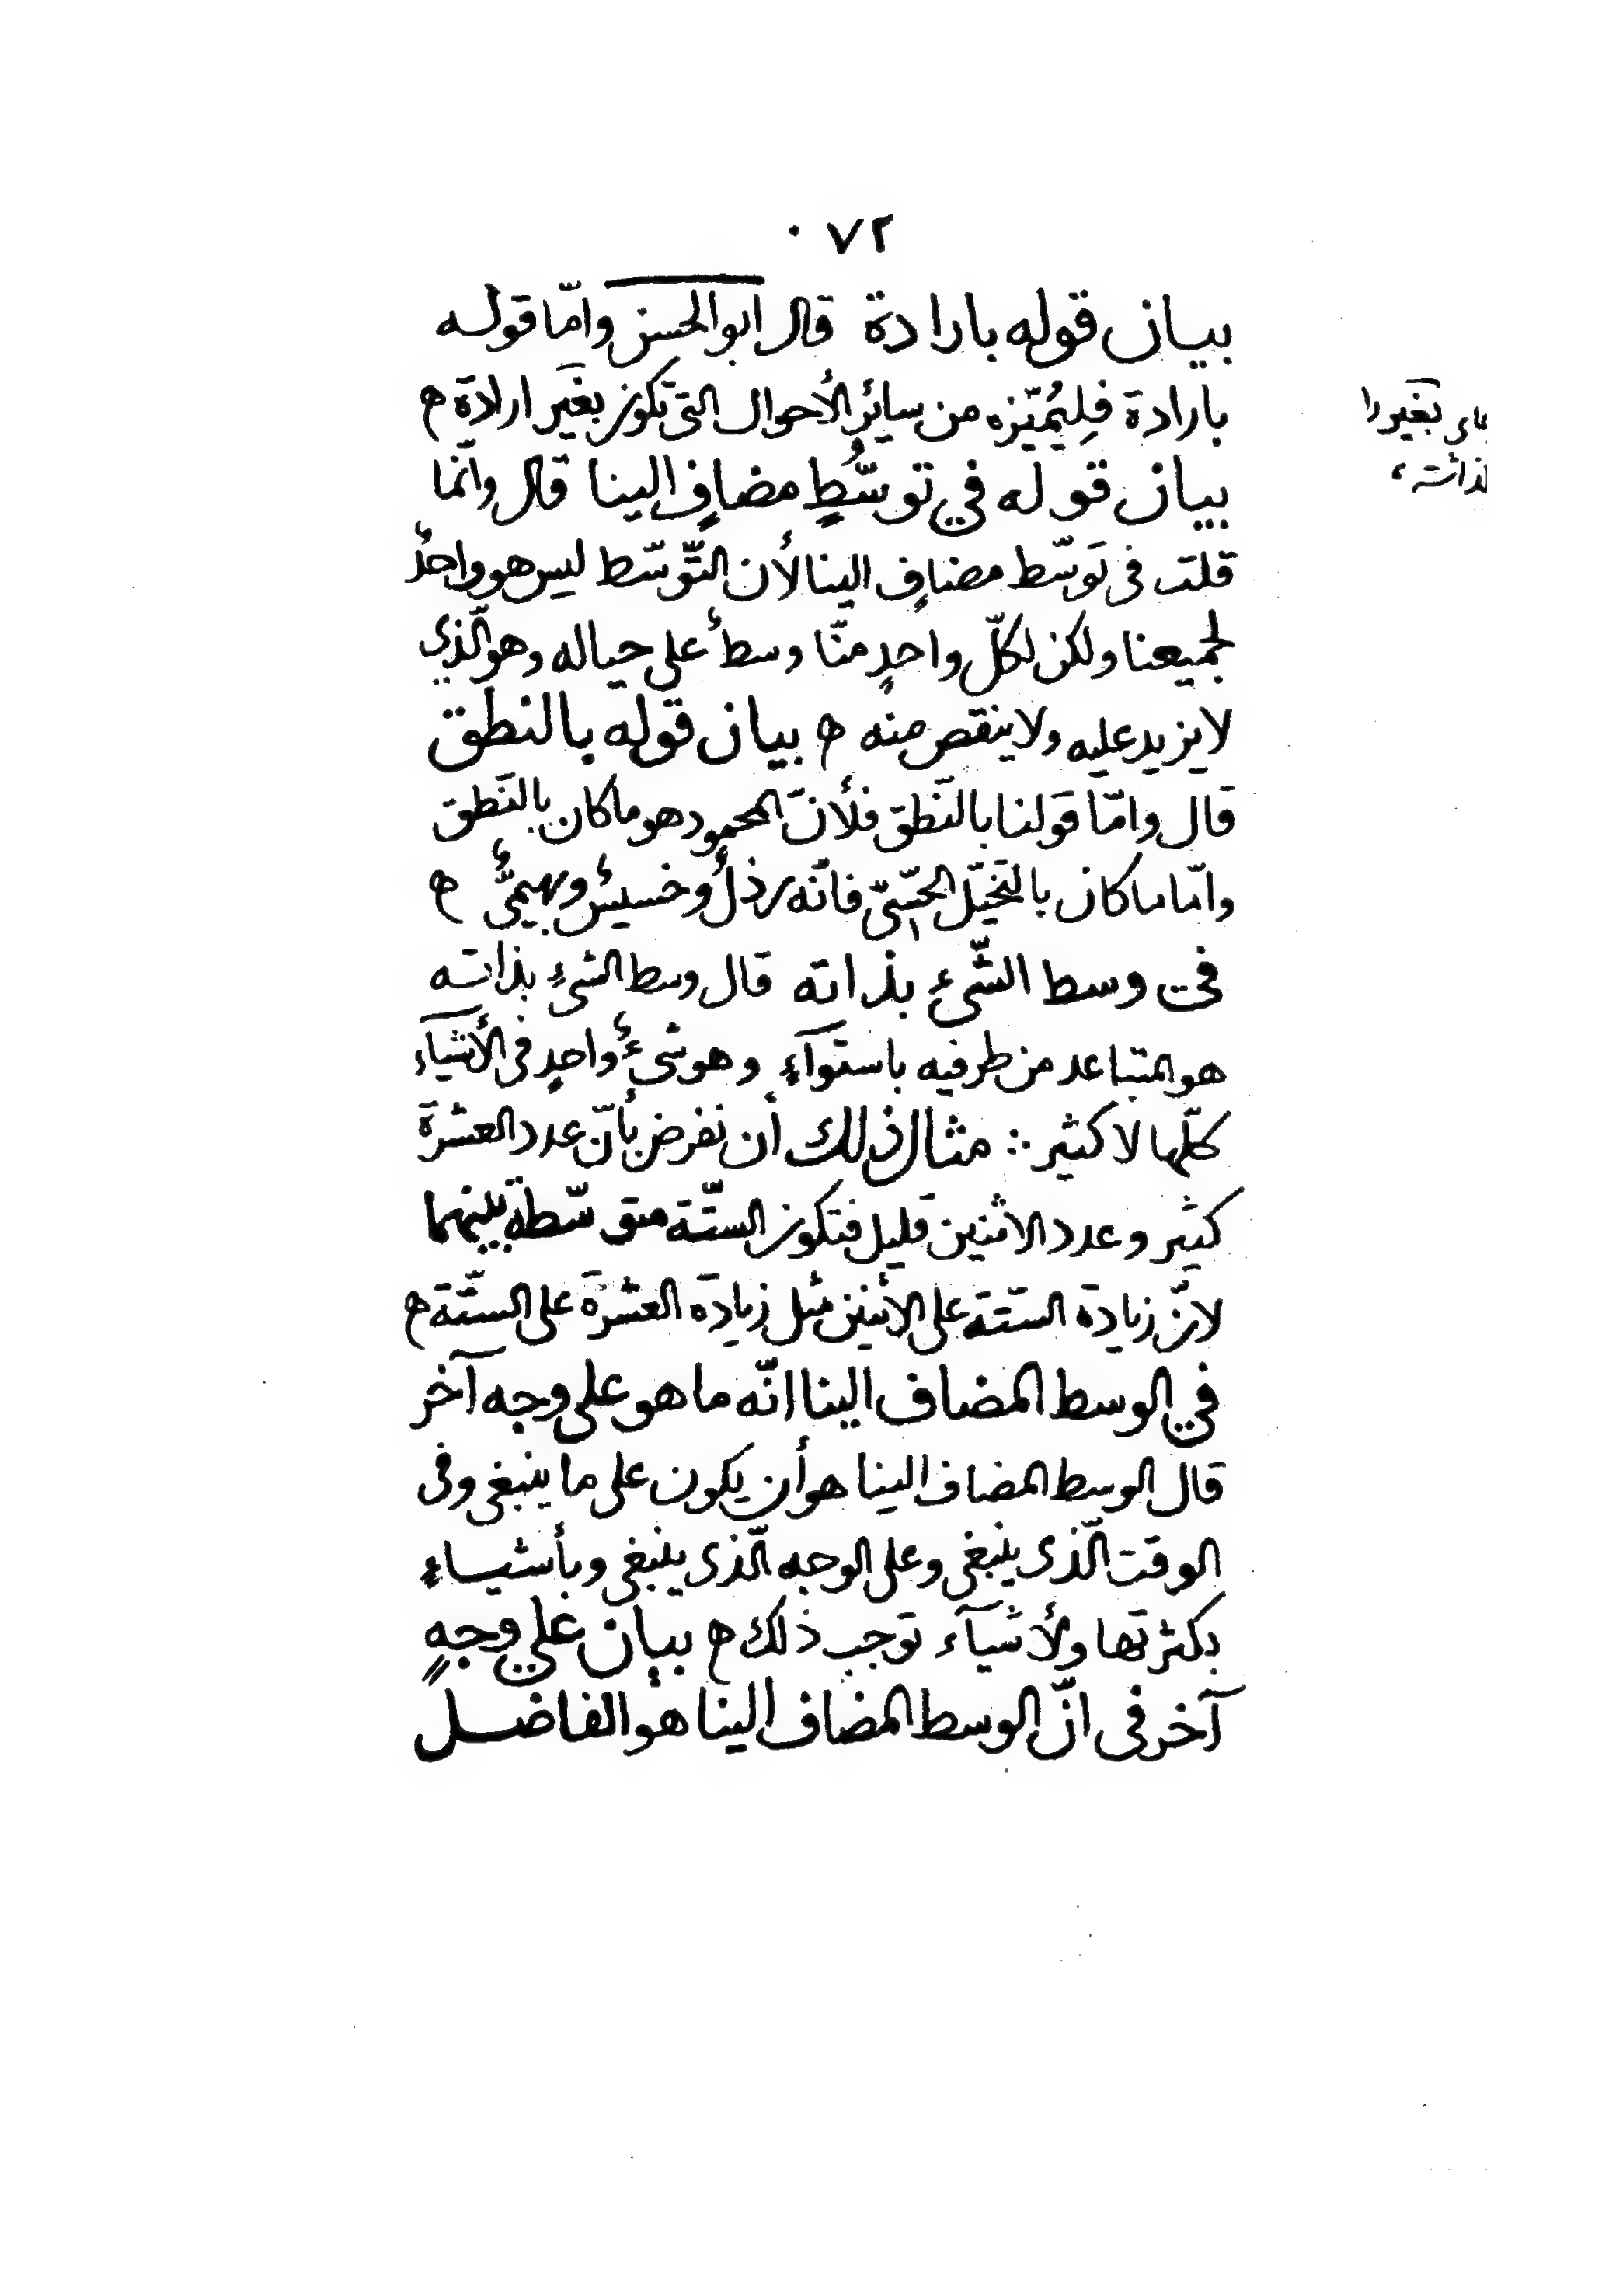 ٧٢ ٠
بيان قوله بارادة قال ابوالحسن وامّا قوله
بارادة فلِيُميّزه من سايرِ الأحوال التى تكون بغير ارادة ه
بيان قوله في توسُّطٍ مضافٍ الينا قال وانّما
قلت فى توسّط مضافٍ الينا لأن التّوسّط ليس هو واحدٌ
لجميعنا ولكن لكلّ واحدٍ منّا وسطٌ على حياله وهو الّذي
لا يزيد عليه ولا ينقص منه ه بيان قوله بالنطق
قال وامّا قولنا بالنّطق فلأنّ المحمود هو ما كان بالنّطق
وامّا ما كان بالتخيّل الحسّىّ فانّه رذلٌ وخسيسٌ وبهيمىٌّ ه
في وسط الشّىء بذاته قال وسط الشىءِ بذاته
هو المتباعد من طرفيه باستوآءٍ وهو شىءٌ واحدٍ فى الأشيآء
كلّها لا كثير ∴ مثال ذلك أن نفرض بأنّ عدد العشرة
كثير وعدد الاثنين قليل فتكون الستّة متوسّطة بينهما
لانّ زيادة الستّة على الأثنين مثل زيادة العشرة على الستّة ه
في الوسط المضاف الينا انّه ما هو على وجه آخر
قال الوسط المضاف الينا هو أن يكون على ما ينبغى وفى
الوقت الّذى ينبغى وعلى الوجه الّذى ينبغى وبأشياءٍ
بكثرتها ولأشيآء توجب ذلك ه بيان على وجهٍ
آخر فى انّ الوسط المضاف الينا هو الفاضل
بغير